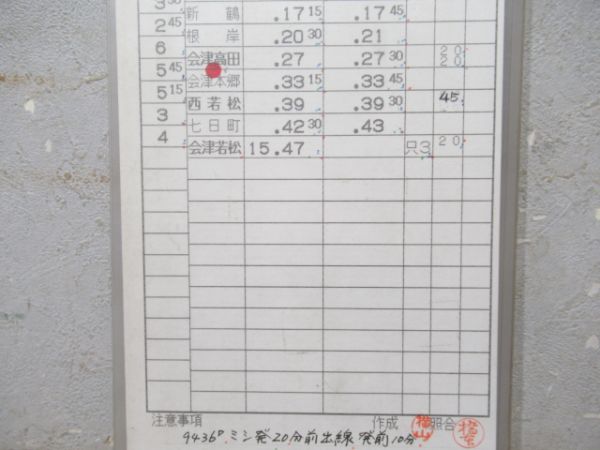 3 30
新鶴 .17 15 .17 45
2 45
根岸 .20 30 .21
6
会津高田 .27 .27 30 20 20
5 45
会津本郷 .33 15 .33 45
5 15
西若松 .39 .39 30 45
3
七日町 .42 30 .43
4
会津若松 15.47 只3 20
注意事項 作成 横山 照合
9436D ミシ発20分前出線 発前10分